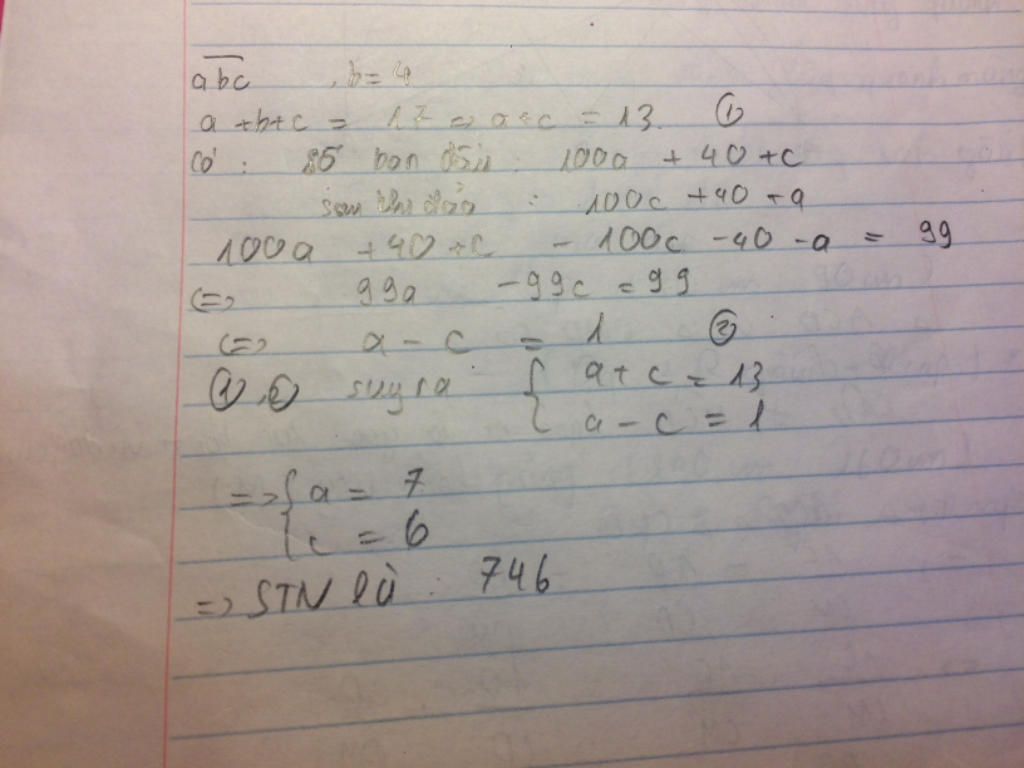 abc , b = 4
a + b + c = 17 => a + c = 13. ①
Có : số ban đầu : 100a + 40 + c
sau khi đảo : 100c + 40 + a
100a + 40 + c - 100c - 40 - a = 99
<=> 99a - 99c = 99
<=> a - c = 1 ②
①, ② suy ra { a + c = 13
a - c = 1
=> { a = 7
c = 6
=> STN là : 746